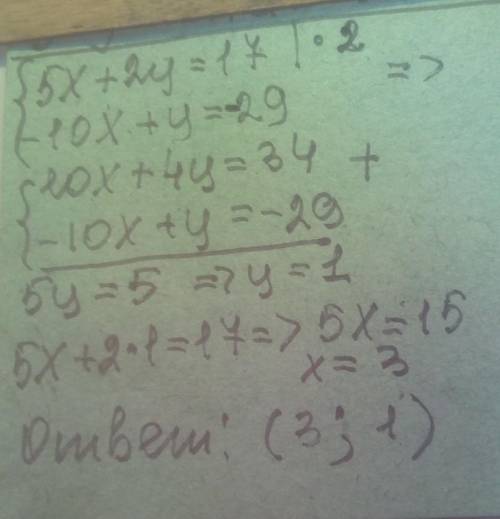 5x+2y=17 | • 2
=>
-10x+y=-29
10x+4y=34 +
-10x+y=-29
5y=5 => y=1
5x+2•1=17=> 5x=15
x=3
Ответ: (3; 1)